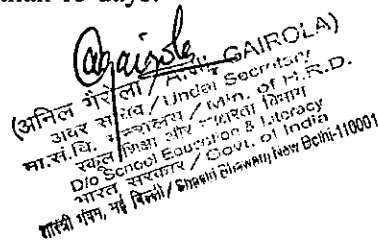 than 10 days.
Gairola
(अनिल गैरोला / ANIL GAIROLA)
अवर सचिव / Under Secretary
मा.सं.वि. मंत्रालय / Min. of H.R.D.
स्कूल शिक्षा और साक्षरता विभाग
D/o School Education & Literacy
भारत सरकार / Govt. of India
शास्त्री भवन, नई दिल्ली / Shastri Bhawan, New Delhi-110001